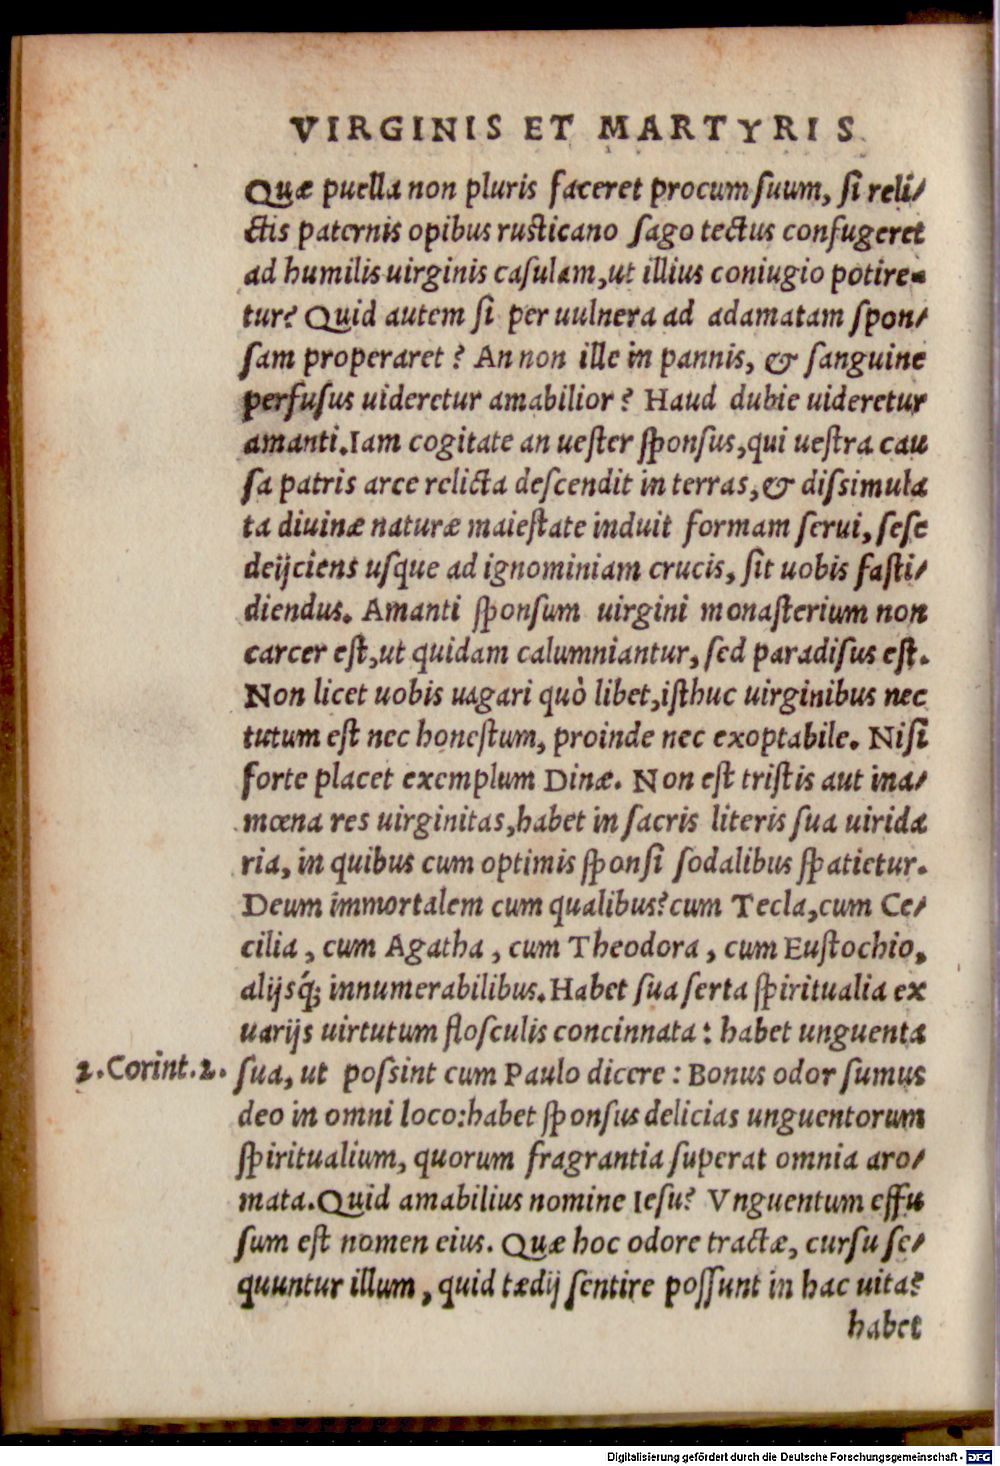 VIRGINIS ET MARTYRIS
Quæ puella non pluris faceret procum suum, si reli/
ctis paternis opibus rusticano sago tectus confugeret
ad humilis uirginis casulam, ut illius coniugio potire-
tur? Quid autem si per uulnera ad adamatam spon/
sam properaret? An non ille in pannis, & sanguine
perfusus uideretur amabilior? Haud dubie uideretur
amanti. Iam cogitate an uester sponsus, qui uestra cau
sa patris arce relicta descendit in terras, & dissimula
ta diuinæ naturæ maiestate induit formam serui, sese
deijciens usque ad ignominiam crucis, sit uobis fasti/
diendus. Amanti sponsum uirgini monasterium non
carcer est, ut quidam calumniantur, sed paradisus est.
Non licet uobis uagari quò libet, isthuc uirginibus nec
tutum est nec honestum, proinde nec exoptabile. Nisi
forte placet exemplum Dinæ. Non est tristis aut ina/
mœna res uirginitas, habet in sacris literis sua uirida
ria, in quibus cum optimis sponsi sodalibus spatietur.
Deum immortalem cum qualibus? cum Tecla, cum Ce/
cilia, cum Agatha, cum Theodora, cum Eustochio,
alijsq́; innumerabilibus. Habet sua serta spiritualia ex
uarijs uirtutum flosculis concinnata: habet unguenta
2. Corint. 2. sua, ut possint cum Paulo dicere: Bonus odor sumus
deo in omni loco: habet sponsus delicias unguentorum
spiritualium, quorum fragrantia superat omnia aro/
mata. Quid amabilius nomine Iesu? Vnguentum effu
sum est nomen eius. Quæ hoc odore tractæ, cursu se/
quuntur illum, quid tædij sentire possunt in hac uita?
habet
Digitalisierung gefördert durch die Deutsche Forschungsgemeinschaft - DFG